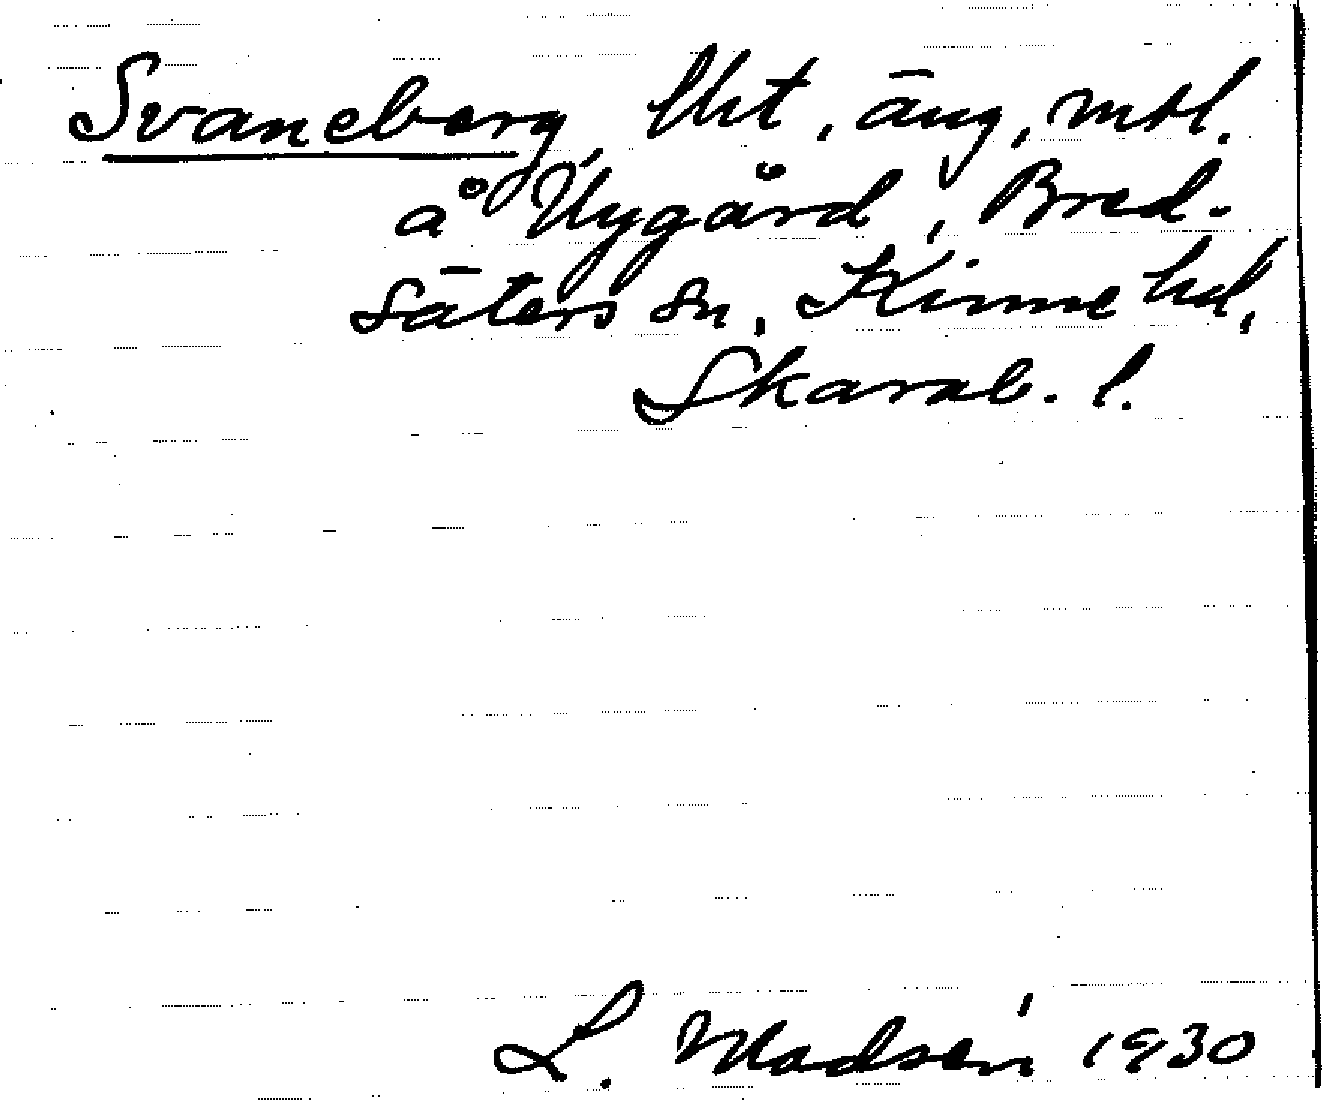 Svaneberg, Utt, äng, mtl.
å Nygård, Bred-
säters sn, Kinne hd,
Skarab. l.
L. Madsén 1930